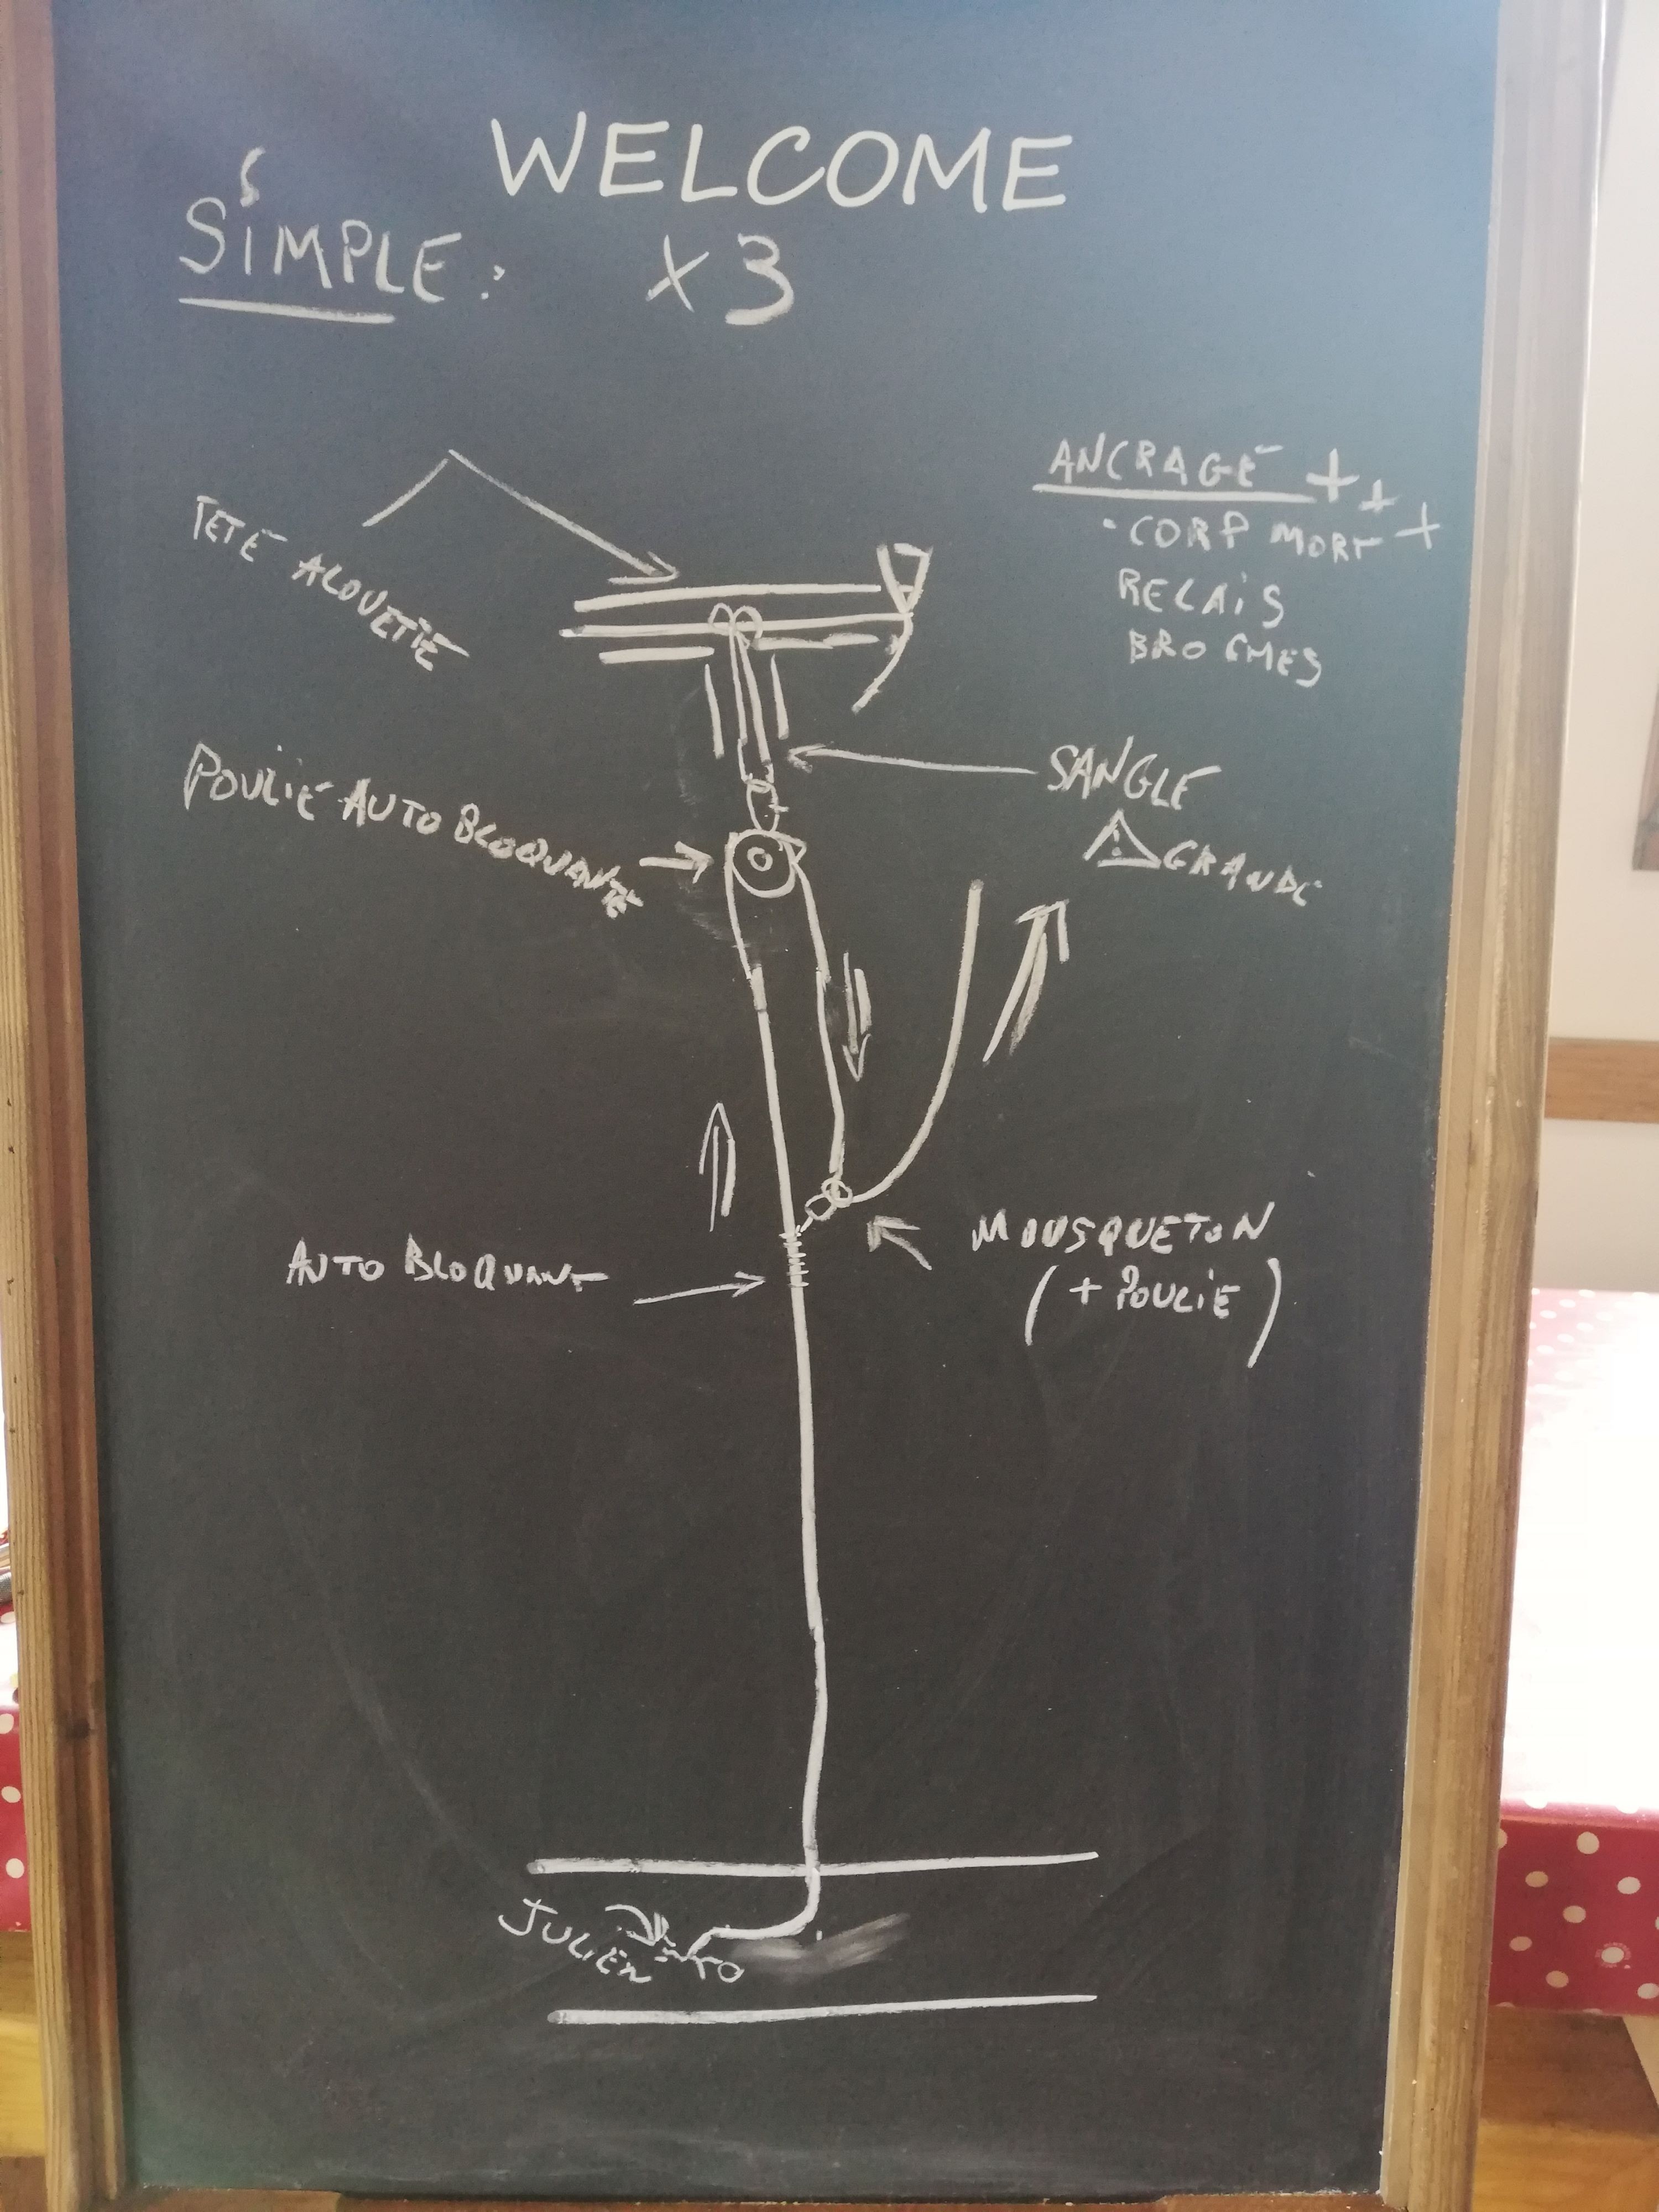 WELCOME
SIMPLE: X3
ANCRAGE +++
· CORP MORT
RELAIS
BROCHES
TETE ALOUETTE
POULIE AUTO BLOQUANTE
SANGLE
⚠ GRANDE
AUTO BLOQUANT
MOUSQUETON
(+ POULIE)
JULIEN